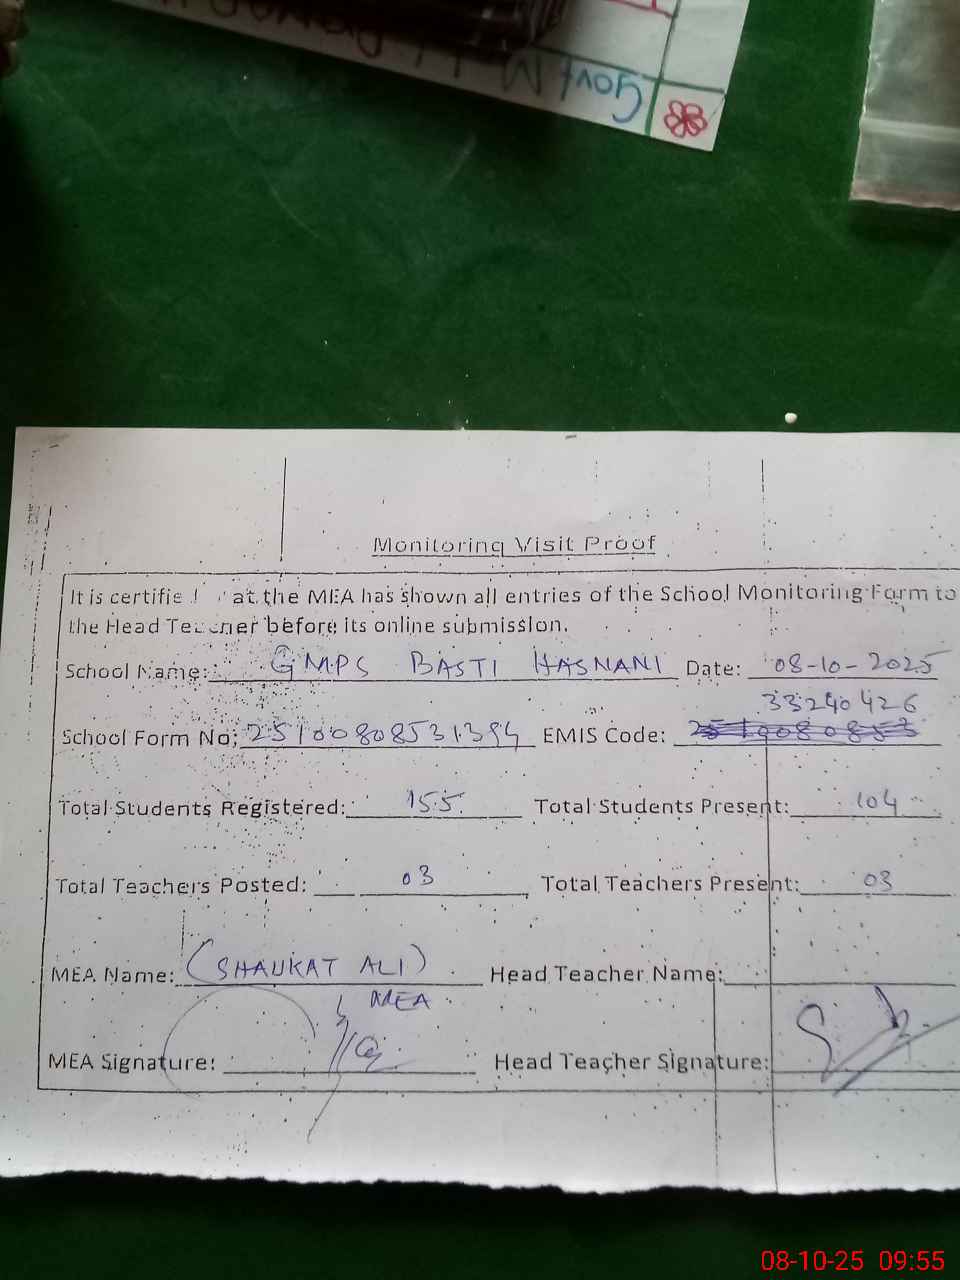 Govt M
Monitoring Visit Proof
It is certified that the MEA has shown all entries of the School Monitoring Form to
the Head Teacher before its online submission.
School Name: GMPS BASTI HASNANI Date: 08-10-2025
33240426
School Form No: 25100808531394 EMIS Code:
Total Students Registered: 155 Total Students Present: 104
Total Teachers Posted: 03 Total Teachers Present: 03
MEA Name: (SHAUKAT ALI) Head Teacher Name:
MEA
MEA Signature: Head Teacher Signature:
08-10-25 09:55